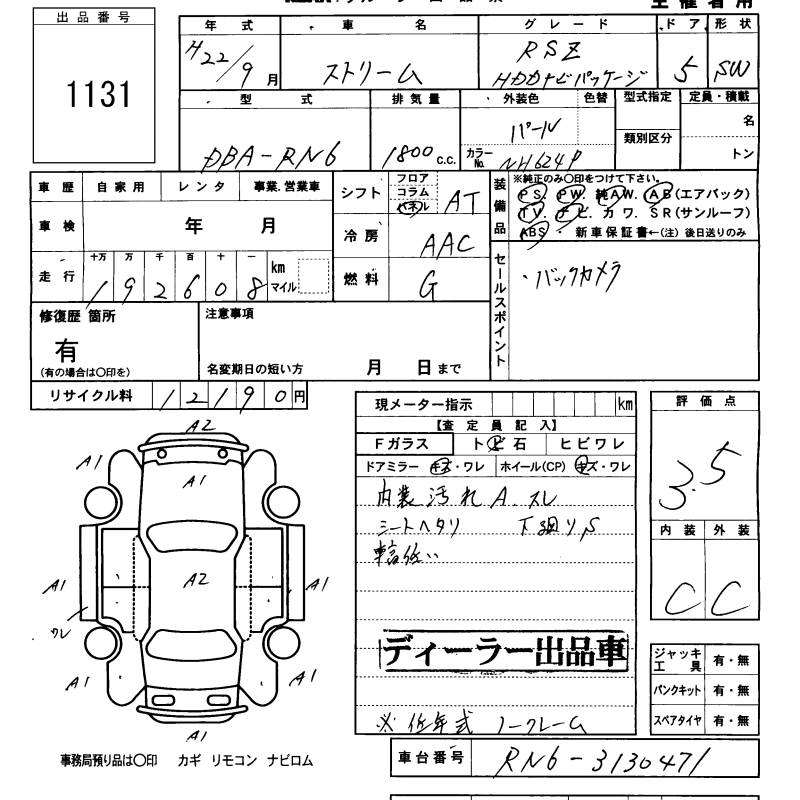 出品番号
1131
年式 車名 グレード ドア 形状
H22/9月 ストリーム RSZ HDDナビパッケージ 5 SW
型式 排気量 外装色 色替 型式指定 定員・積載
DBA-RN6 1800c.c. パール 名
カラーNo. NH624P 類別区分 トン
車歴 自家用 レンタ 事業.営業車
車検 年 月
走行 十万 万 千 百 十 一 km マイル
192608
シフト フロア コラム パネル AT
冷房 AAC
燃料 G
装備品
※純正のみ〇印をつけて下さい。
PS. PW. 純AW. AB(エアバック)
TV. ナビ. カワ. SR(サンルーフ)
ABS・新車保証書←(注)後日送りのみ
セールスポイント
・バックカメラ
修復歴 箇所
有
(有の場合は〇印を)
注意事項
名変期日の短い方 月 日まで
リサイクル料 12190円
現メーター指示 km
【査定員記入】
Fガラス トビ石 ヒビワレ
ドアミラー キズ・ワレ ホイール(CP) キズ・ワレ
内装汚れA.スレ
シートヘタリ 下廻りS
評価点
3.5
内装 外装
C C
ディーラー出品車
※低年式 ノークレーム
ジャッキ工具 有・無
パンクキット 有・無
スペアタイヤ 有・無
A2
A1 A1 A1
A2
A1 A1
ワレ
A1 A1
A1
事務局預り品は〇印 カギ リモコン ナビロム
車台番号 RN6-3130471